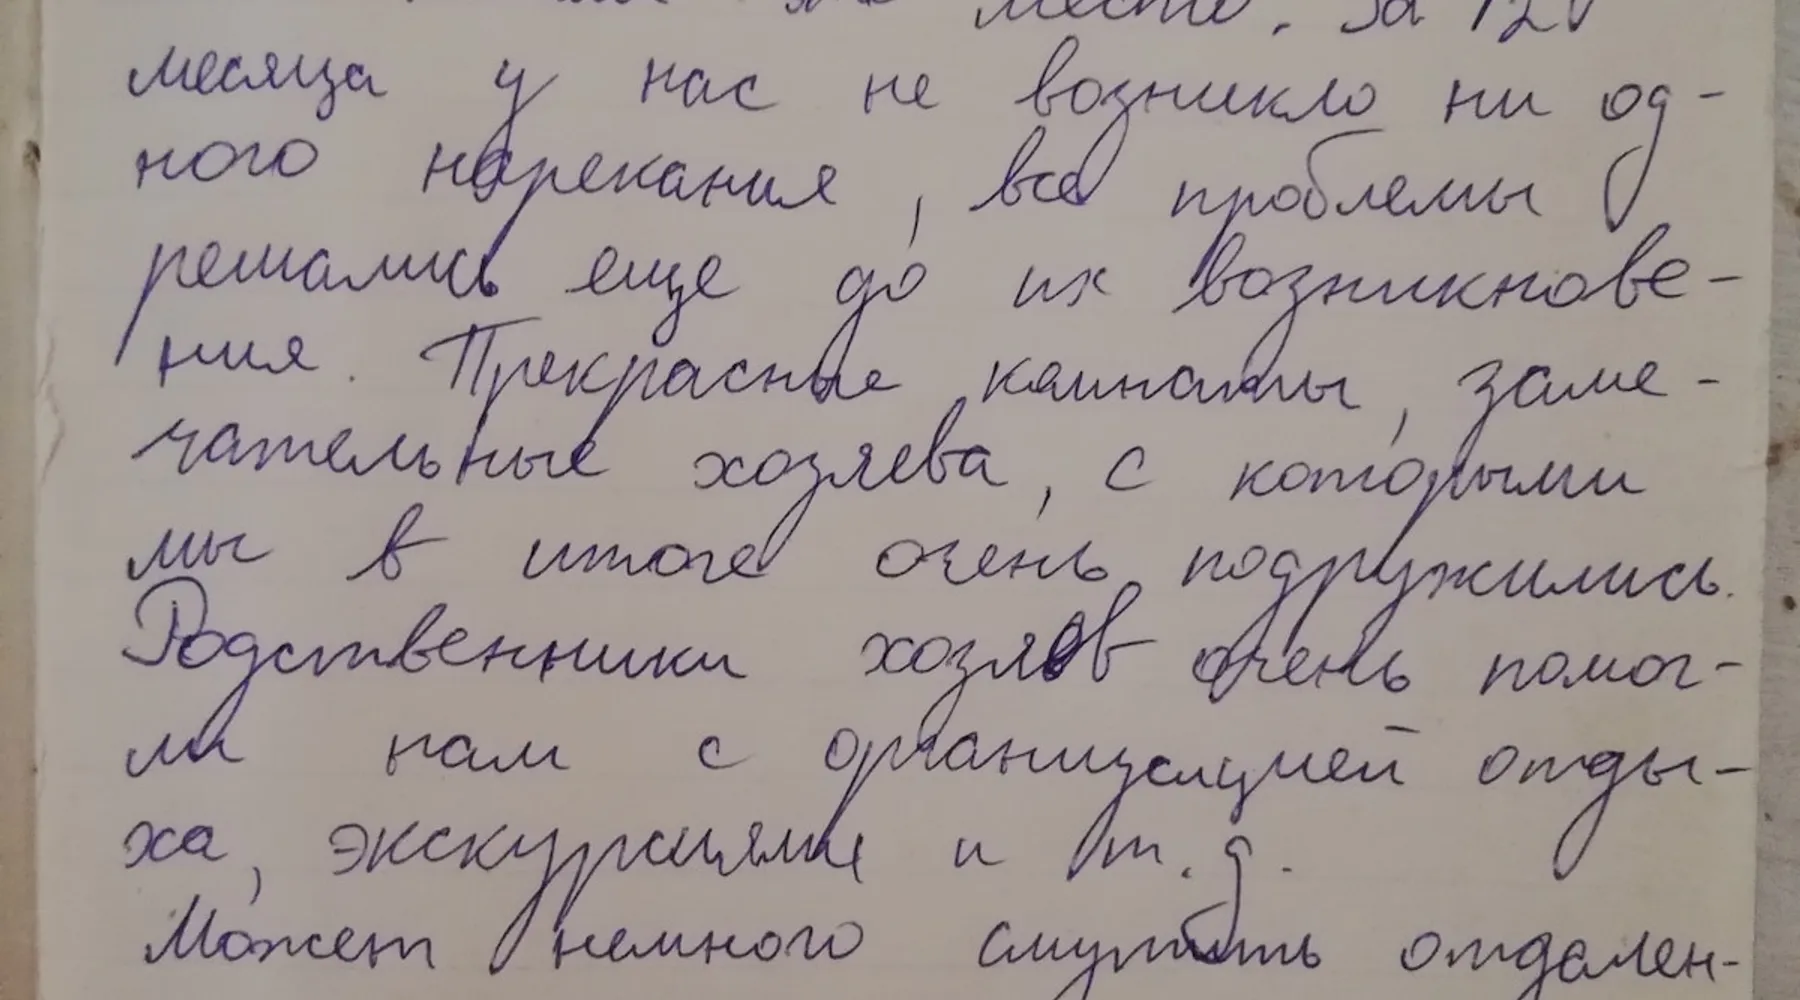 место. За 1,5
месяца у нас не возникло ни од-
ного нарекания, все проблемы
решались еще до их возникнове-
ния. Прекрасные комнаты, заме-
чательные хозяева, с которыми
мы в итоге очень подружились.
Родственники хозяев очень помог-
ли нам с организацией отды-
ха, экскурсиями и т.д.
Может немного смутить отдален-